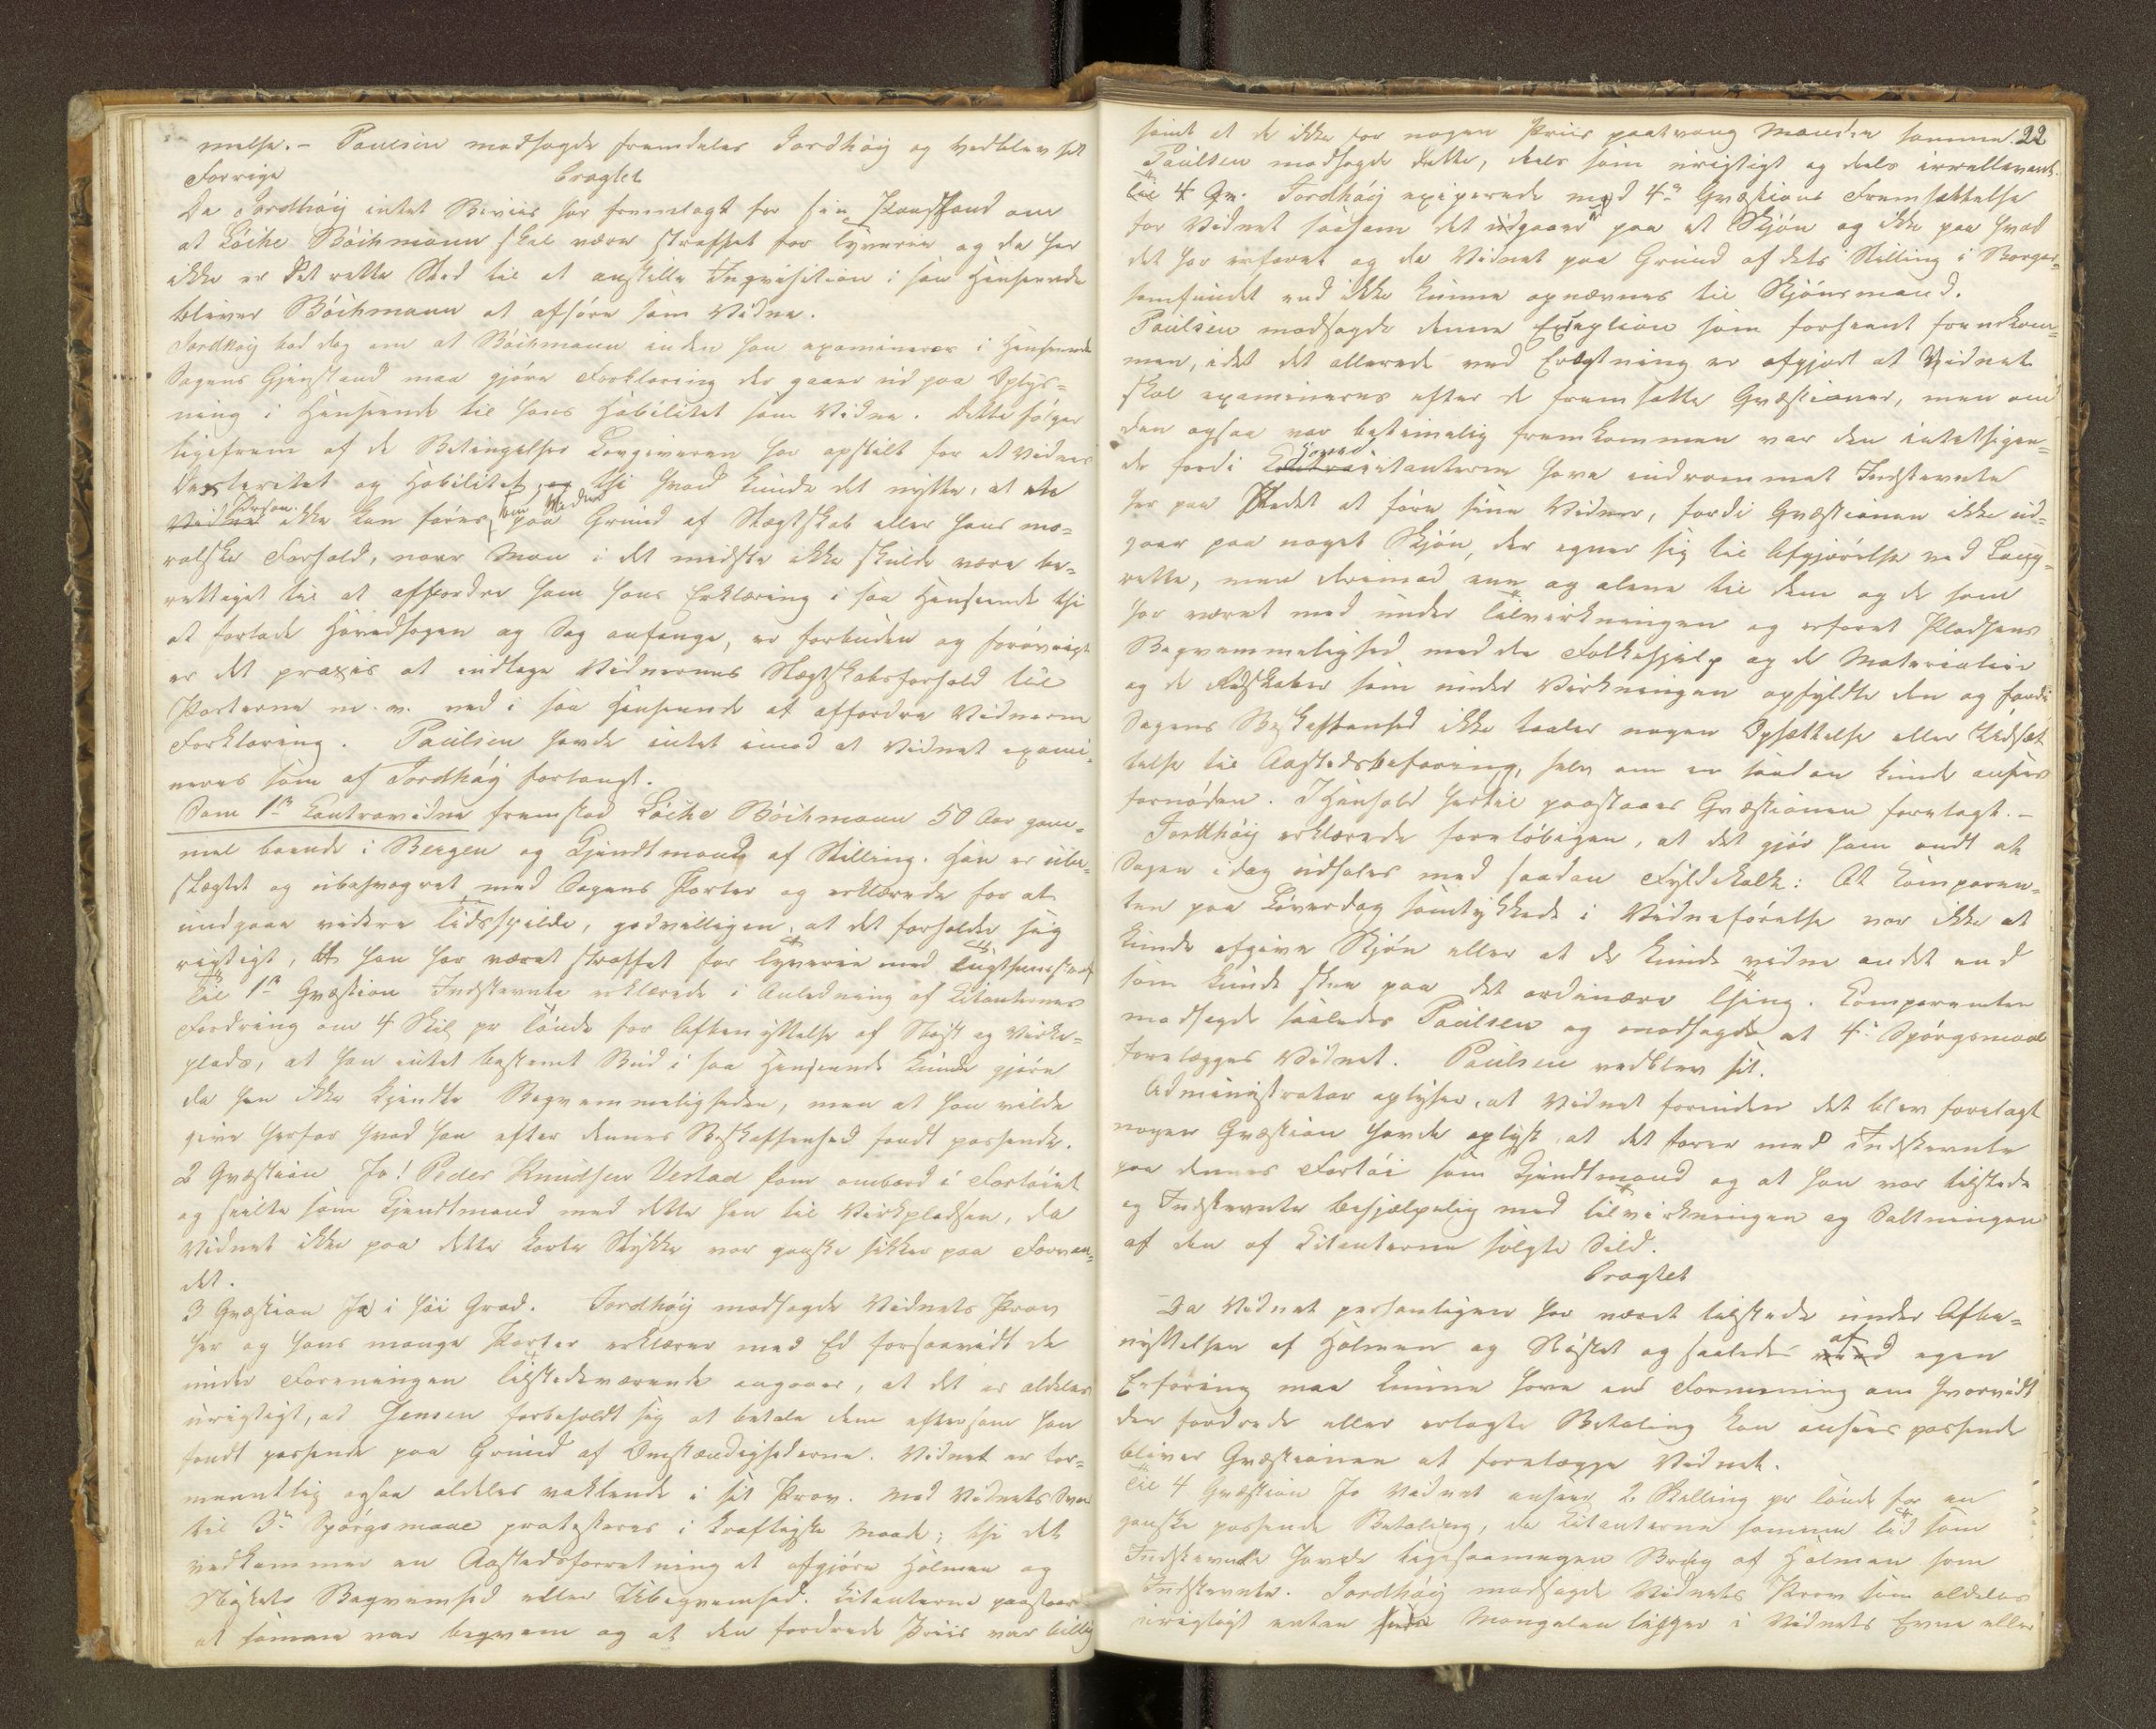 melse. - Paulsen modsagde fremdeles Jordhøy og vedblev sit
Forrige
Eragtet
Da Jordhøy intet Beviis har fremlagt for sin Paastand om
at Løihe Böchmann skal være straffet for Tyverie og da her
ikke er det rette Sted til at anstille Inqvisition i saa Henseende
bliver Böchmann at afhøre som Vidne.
Jordhøy bad dog om at Böchmann inden han examineres i Henseende
Sagens Gjenstand maa gjøre Forklaring der gaaer ud paa Oplys=
ning i Henseende til hans Habilitet som Vidne. Dette følger
ligefrem af de Betingelser Lovgiveren har opstilt for at Vidnes
og Habilitet, thi hvad kunde det nytte, at en
Person ikke kan føres som Vidne paa Grund af Slægtskab eller hans mo=
ralske Forhold, naar Man i det mindste ikke skulde være be=
rettiget til at affordre ham hans Erklæring i saa Henseende thi
at forlade Hovedsagen og Sag anfange, er forbuden og forøvrigt
er det praxis at indtage Vidnernes Slægtskabsforhold til
Parterne m. v. ved i saa Henseende at affordre Vidnerne
Forklaring. Paulsen havde intet imod at Vidnet exami=
neres som af Jordhøy forlangt.
Som 1ste Contravidne fremstod Löihe Böchmann 50 Aar gam=
mel boende i Bergen og Kjendtmand af Stilling. Han er ube=
slægtet og ubesvogret med Sagens Parter og erklærede for at
undgaae videre Tidsspilde, godvilligen, at det forholder sig
rigtigt, at han har været straffet for Tyverie med Tugthuusstraf
Til 1ste Qvæstion Indstevnte erklærede i Anledning af Citanternes
Fordring om 4 Skil pr Tønde for Afbenyttelse af Nøst og Virke=
plads, at han intet bestemt Bud i saa Henseende kunde gjøre
da han ikke kjendte Beqvemmeligheden, men at han vilde
give herfor hvad han efter dennes Beskaffenhed fandt passende.
2 Qvæstion Ja! Peder Knudsen Vestad kom ombord i Fartøiet
og seilte som Kjendtmand med dette hen til Virkepladsen, da
Vidnet ikke paa dette korte Stykke var ganske sikker paa Farvan=
det.
3 Qvæstion Ja i høi Grad. Jordhøy modsagde Vidnets Prov
her og hans mange Parter erklærer med Ed forsaavidt de
under Foreningen tilstedeværende angaaer, at det er aldeles
urigtigt, at Jensen forbeholdt sig at betale dem eftersom han
fandt passende paa Grund af Omstændighederne. Vidnet er for=
mentlig ogsaa aldeles vaklende i sit Prov. Mod Vidnets Svar
til 3die Spørgsmaal protesteres i kraftigste Maade; thi det
vedkommer en Aastedsforretning at afgjøre Holmen og
Nøstets Beqvemhed eller Ubeqvemhed. Citanterne paastaaer
at samme var beqvem og at den fordrede Priis var billig
22
samt at de ikke for nogen Priis paatvang Manden samme.
Paulsen modsagde dette, deels som urigtigt og deels irrellevant.
til 4 Qv. Jordhøy exiperede mod 4de Qvæstions Fremsættelse
for Vidnet saasom det udgaaer paa et Skjøn og ikke paa hvad
det har erfaret og da Vidnet paa Grund af dets Stilling i Borger=
samfundet end ikke kunne opnævnes til Skjønsmand.
Paulsen modsagde denne Exception som forseent fremkom=
men, idet det allerede ved Eragtning er afgjort at Vidnet
skal examineres efter de fremsatte Qvæstioner, men om
den ogsaa var betimelig fremkommen var den intetsigen=
de fordi Citanterne have indrømmet Indstevnte
her paa Stedet at føre sine Vidner, fordi Qvæstionen ikke ud=
gaar paa noget Skjøn, der egner sig til Afgjørelse ved Laug=
rette, men derimod ene og alene til dem og de som
har været med under Tilvirkningen og erfaret Pladsens
Beqvemmelighed med de Folkehjælp og de Materialier
og de Redskaber som under Virkningen opfyldte den og fordi
Sagens Beskaffenhed ikke taaler nogen Opsættelse eller Udsæt
telse til Aastedsbefaring, selv om en saadan kunde ansees
fornøden. I Henhold hertil paastaaes Qvæstionen forelagt. -
Jordhøy erklærede foreløbigen, at det gjør ham ondt at
Sagen idag udhales med saadan Fyldekalk: At Comparen=
ten paa Løverdag samtykkede i Vidneførelse var ikke at
kunde afgive Skjøn eller at de kunde vidne andet end
som kunde skee paa det ordinære Thing. Comparenten
modsagde saaledes Paulsen og modsagde at 4de Spørgsmaal
forelægges Vidnet. Paulsen vedblev sit.
Administrator oplyser, at Vidnet forinden det blev forelagt
nogen Qvæstion havde oplyst, at det farer med Indstevnte
paa dennes Fartøi som Kjendtmand og at han var tilstede
og Indstevnte behjælpelig med Tilvirkningen og Saltningen
af den af Citanterne solgte Sild.
Eragtet
Da Vidnet personligen har været tilstede under Afbe=
nyttelsen af Holmen og Nøstet og saaledes af egen
Erfaring maa kunne have en Formening om hvorvidt
den fordrede eller erlagte Betaling kan ansees passende
bliver Qvæstionen at forelægge Vidnet.
Til 4 Qvæstion Ja Vidnet anseer 2 Skilling pr Tønde for en
ganske passende Betaling, da Citanterne samme Tid som
Indstevnte havde ligesaamegen Brug af Holmen som
Indstevnte. Jordhøy modsagde Vidnets Prov som aldeles
urigtigt enten Mangelen ligger i Vidnets Evne eller